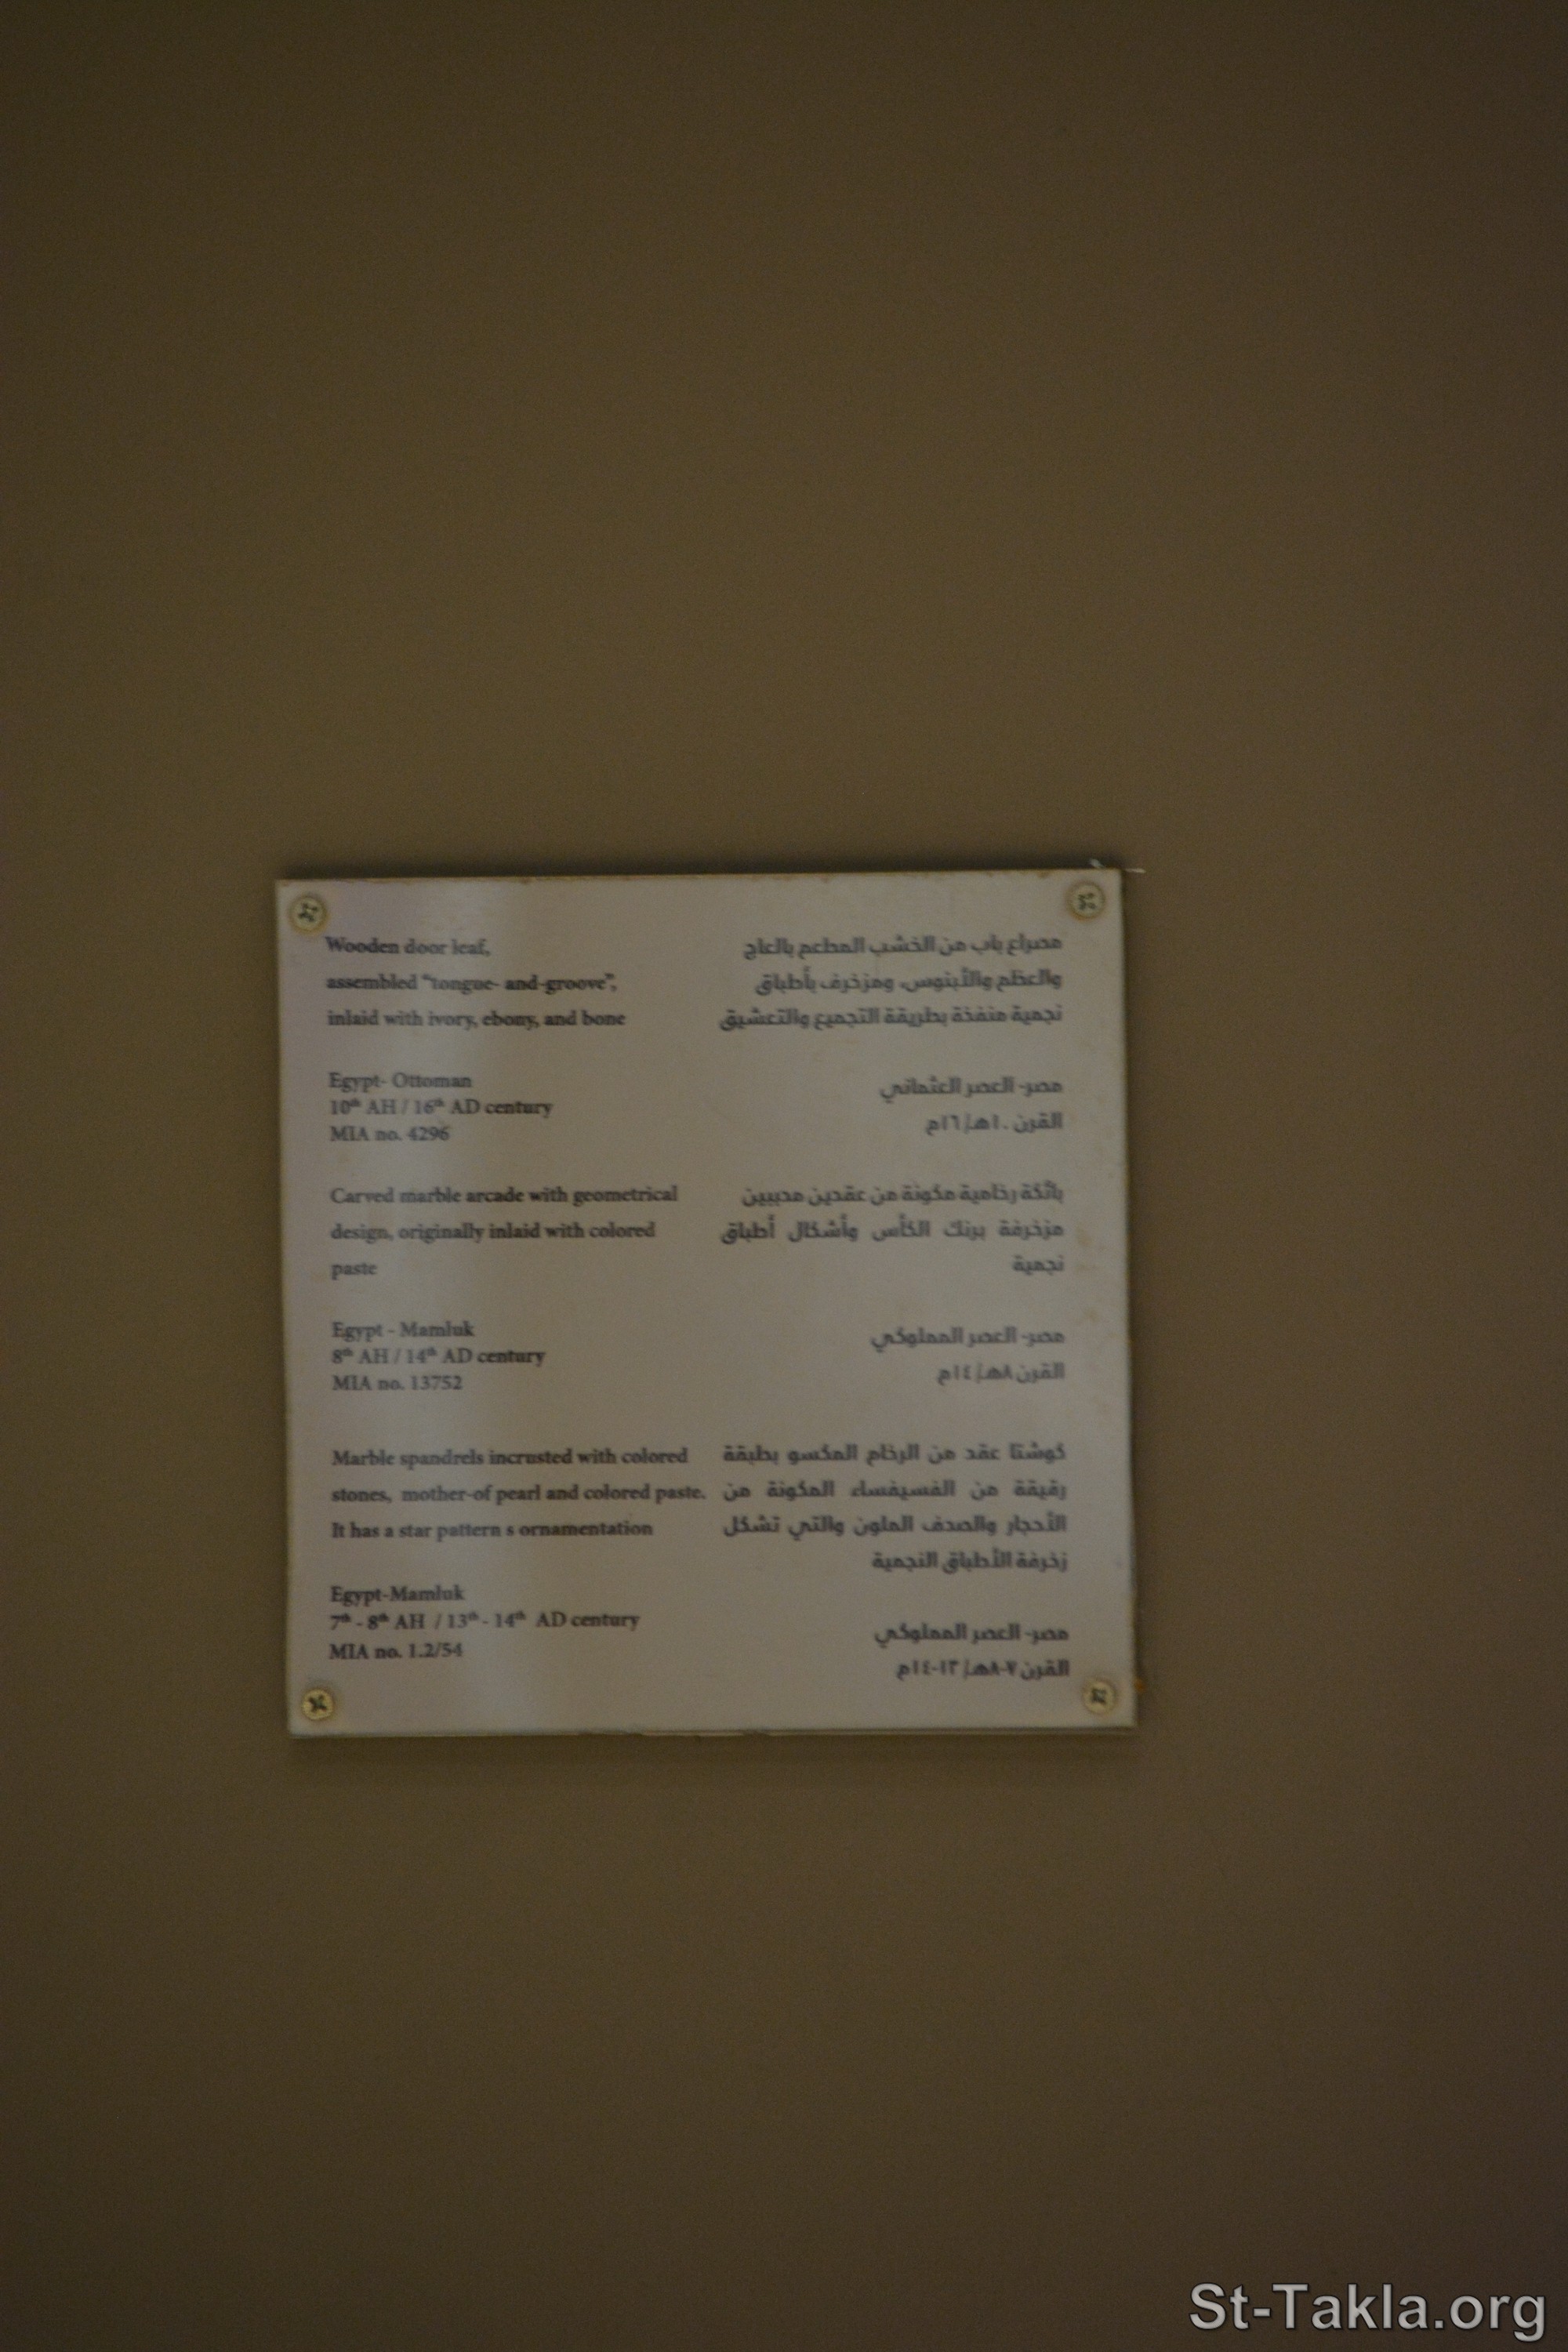 Wooden door leaf,
assembled “tongue- and-groove”,
inlaid with ivory, ebony, and bone
Egypt- Ottoman
10th AH / 16th AD century
MIA no. 4296
مصراع باب من الخشب المطعم بالعاج
والعظم والأبنوس، ومزخرف بأطباق
نجمية منفذة بطريقة التجميع والتعشيق
مصر- العصر العثماني
القرن ١٠هـ/١٦م
Carved marble arcade with geometrical
design, originally inlaid with colored
paste
Egypt - Mamluk
8th AH / 14th AD century
MIA no. 13752
بائكة رخامية مكونة من عقدين مدببين
مزخرفة برنك الكأس وأشكال أطباق
نجمية
مصر- العصر المملوكي
القرن ٨هـ/١٤م
Marble spandrels incrusted with colored
stones, mother-of pearl and colored paste.
It has a star pattern s ornamentation
Egypt-Mamluk
7th - 8th AH / 13th - 14th AD century
MIA no. 1.2/54
كوشتا عقد من الرخام المكسو بطبقة
رقيقة من الفسيفساء المكونة من
الأحجار والصدف الملون والتي تشكل
زخرفة الأطباق النجمية
مصر- العصر المملوكي
القرن ٧-٨هـ/ ١٣-١٤م
St-Takla.org